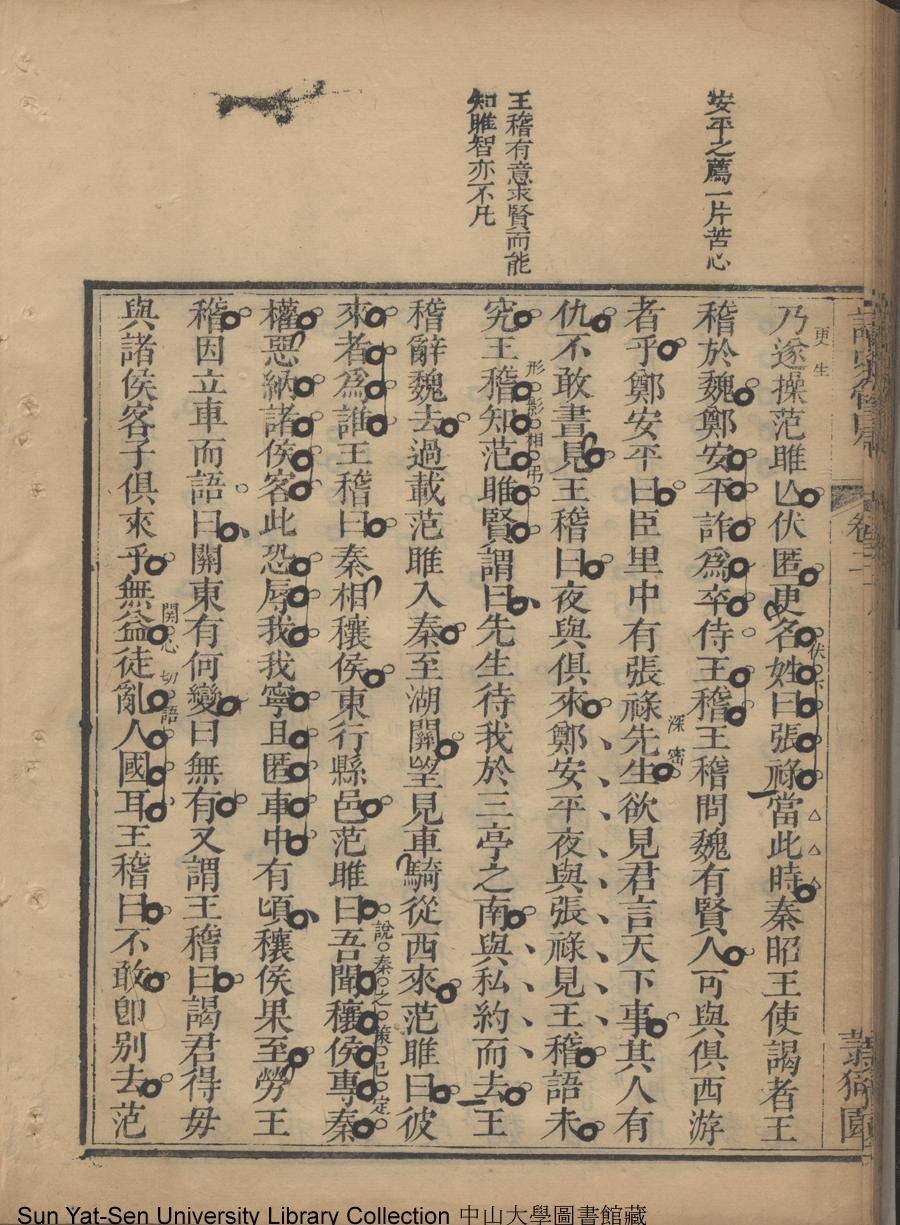 安平之薦一片苦心
王稽有意求賢而能
知雎智亦不凡
卷二
乃遂操范雎亾伏匿更名姓曰張祿當此時秦昭王使謁者王
更生
稽於魏鄭安平詐爲卒侍王稽王稽問魏有賢人可與俱西游
者乎鄭安平曰臣里中有張祿先生欲見君言天下事其人有
深密
仇不敢晝見王稽曰夜與俱來鄭安平夜與張祿見王稽語未
究王稽知范雎賢謂曰先生待我於三亭之南與私約而去王
形影相弔
稽辭魏去過載范雎入秦至湖關望見車騎從西來范雎曰彼
來者爲誰王稽曰秦相穰侯東行縣邑范雎曰吾聞穰侯專秦
說秦之策已定
權惡納諸侯客此恐辱我我寧且匿車中有頃穰侯果至勞王
稽因立車而語曰關東有何變曰無有又謂王稽曰謁君得毋
與諸侯客子俱來乎無益徒亂人國耳王稽曰不敢卽别去范
関心切語
Sun Yat-Sen University Library Collection 中山大學圖書館藏